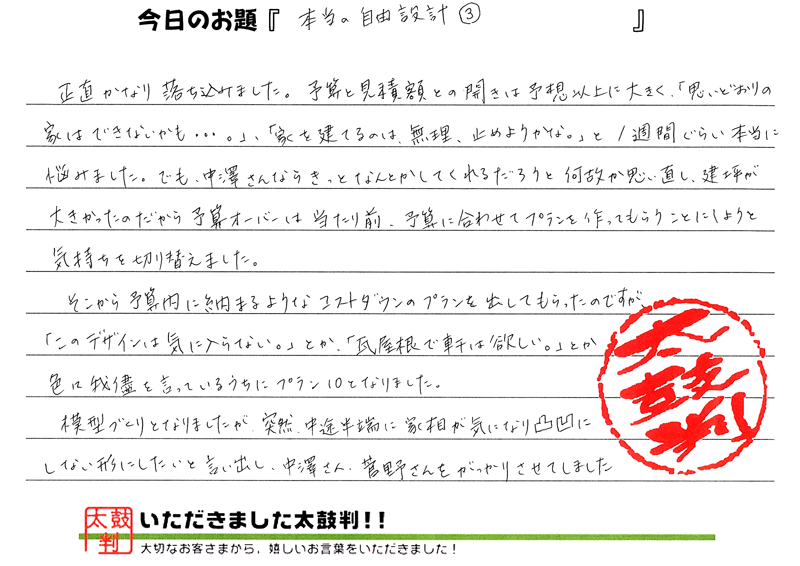 今日のお題『 本当の自由設計③ 』
正直かなり落ち込みました。予算と見積額との開きは予想以上に大きく、「思いどおりの
家はできないかも・・・。」、「家を建てるのは、無理、止めようかな。」と1週間ぐらい本当に
悩みました。でも、中澤さんならきっとなんとかしてくれるだろうと何故か思い直し、建坪が
大きかったのだから予算オーバーは当たり前、予算に合わせてプランを作ってもらうことにしようと
気持ちを切り替えました。
そこから予算内に納まるようなコストダウンのプランを出してもらったのですが
「このデザインは気に入らない。」とか、「瓦屋根で軒は欲しい。」とか
色々我儘を言っているうちにプラン10となりました。
模型づくりとなりましたが、突然、中途半端に家相が気になり凸凹に
しない形にしたいと言い出し、中澤さん、菅野さんをがっかりさせてしました
太鼓判
太鼓判
いただきました太鼓判!!
大切なお客さまから、嬉しいお言葉をいただきました!